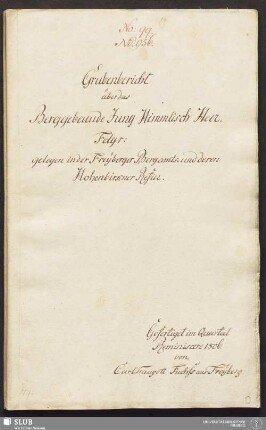 No: 99
No. 956.
Grubenbericht
über das
Berggebäude Jung Himmlisch Heer
Fdgr:
gelegen in der Freyberger Bergamts und deren
Hohenbirkner Refier.
Gefertiget im Quartal
Reminiscere 1806.
von
Carl Traugott aus Freyberg
SLUB